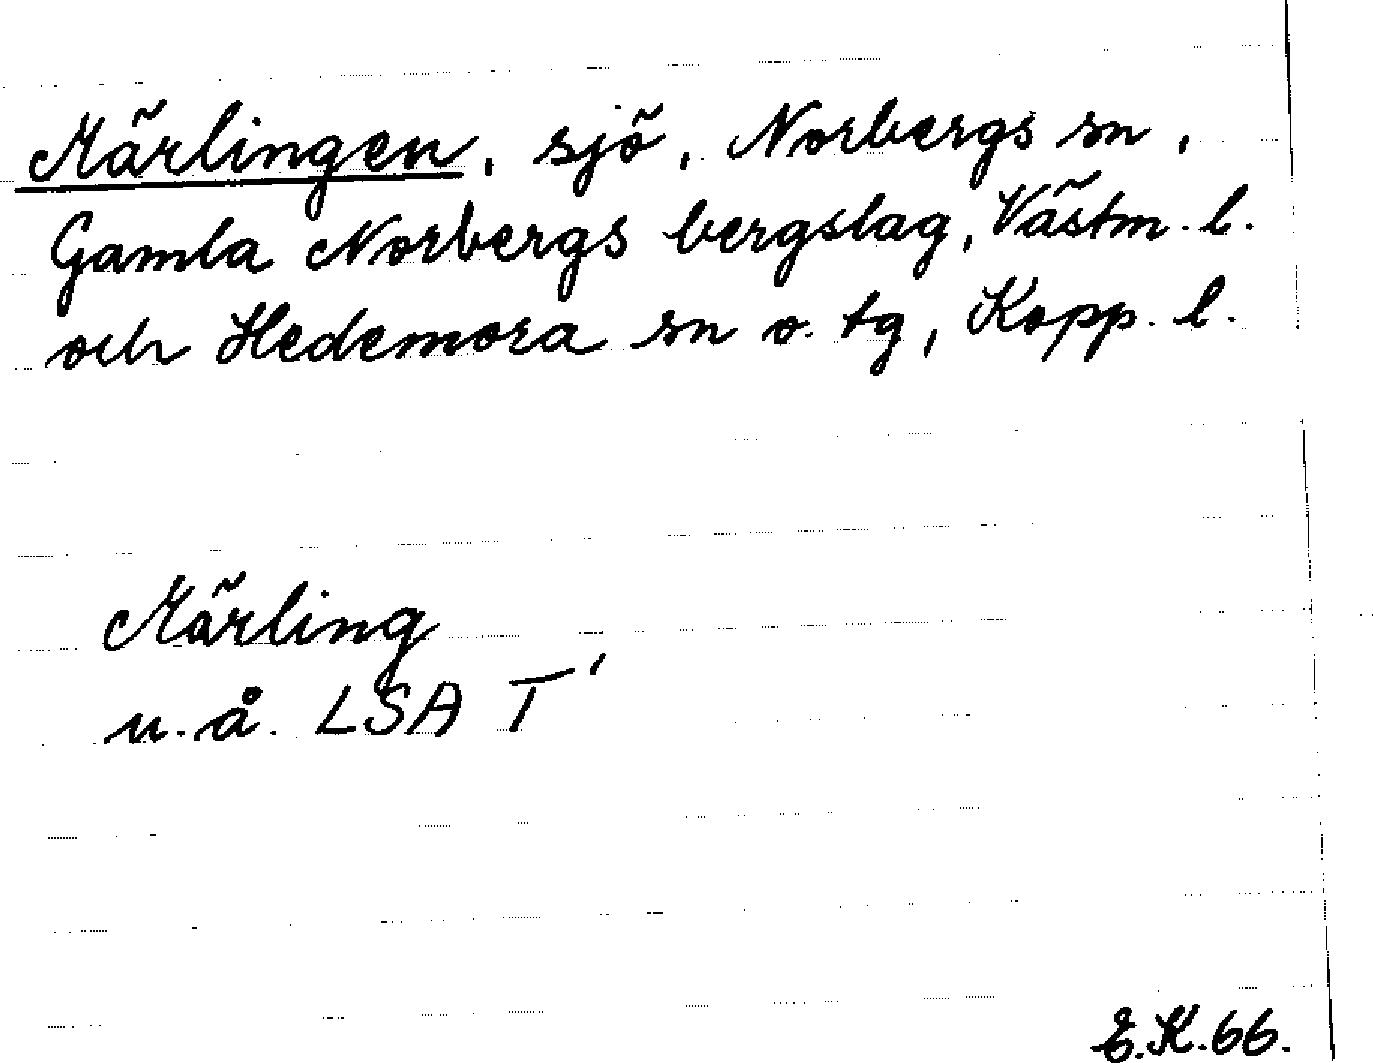 Märlingen, sjö, Norbergs sn,
Gamla Norbergs bergslag, Västm. l.
och Hedemora sn o. tg, Kopp. l.
Märling
u.å. LSA T'
E.K.66.